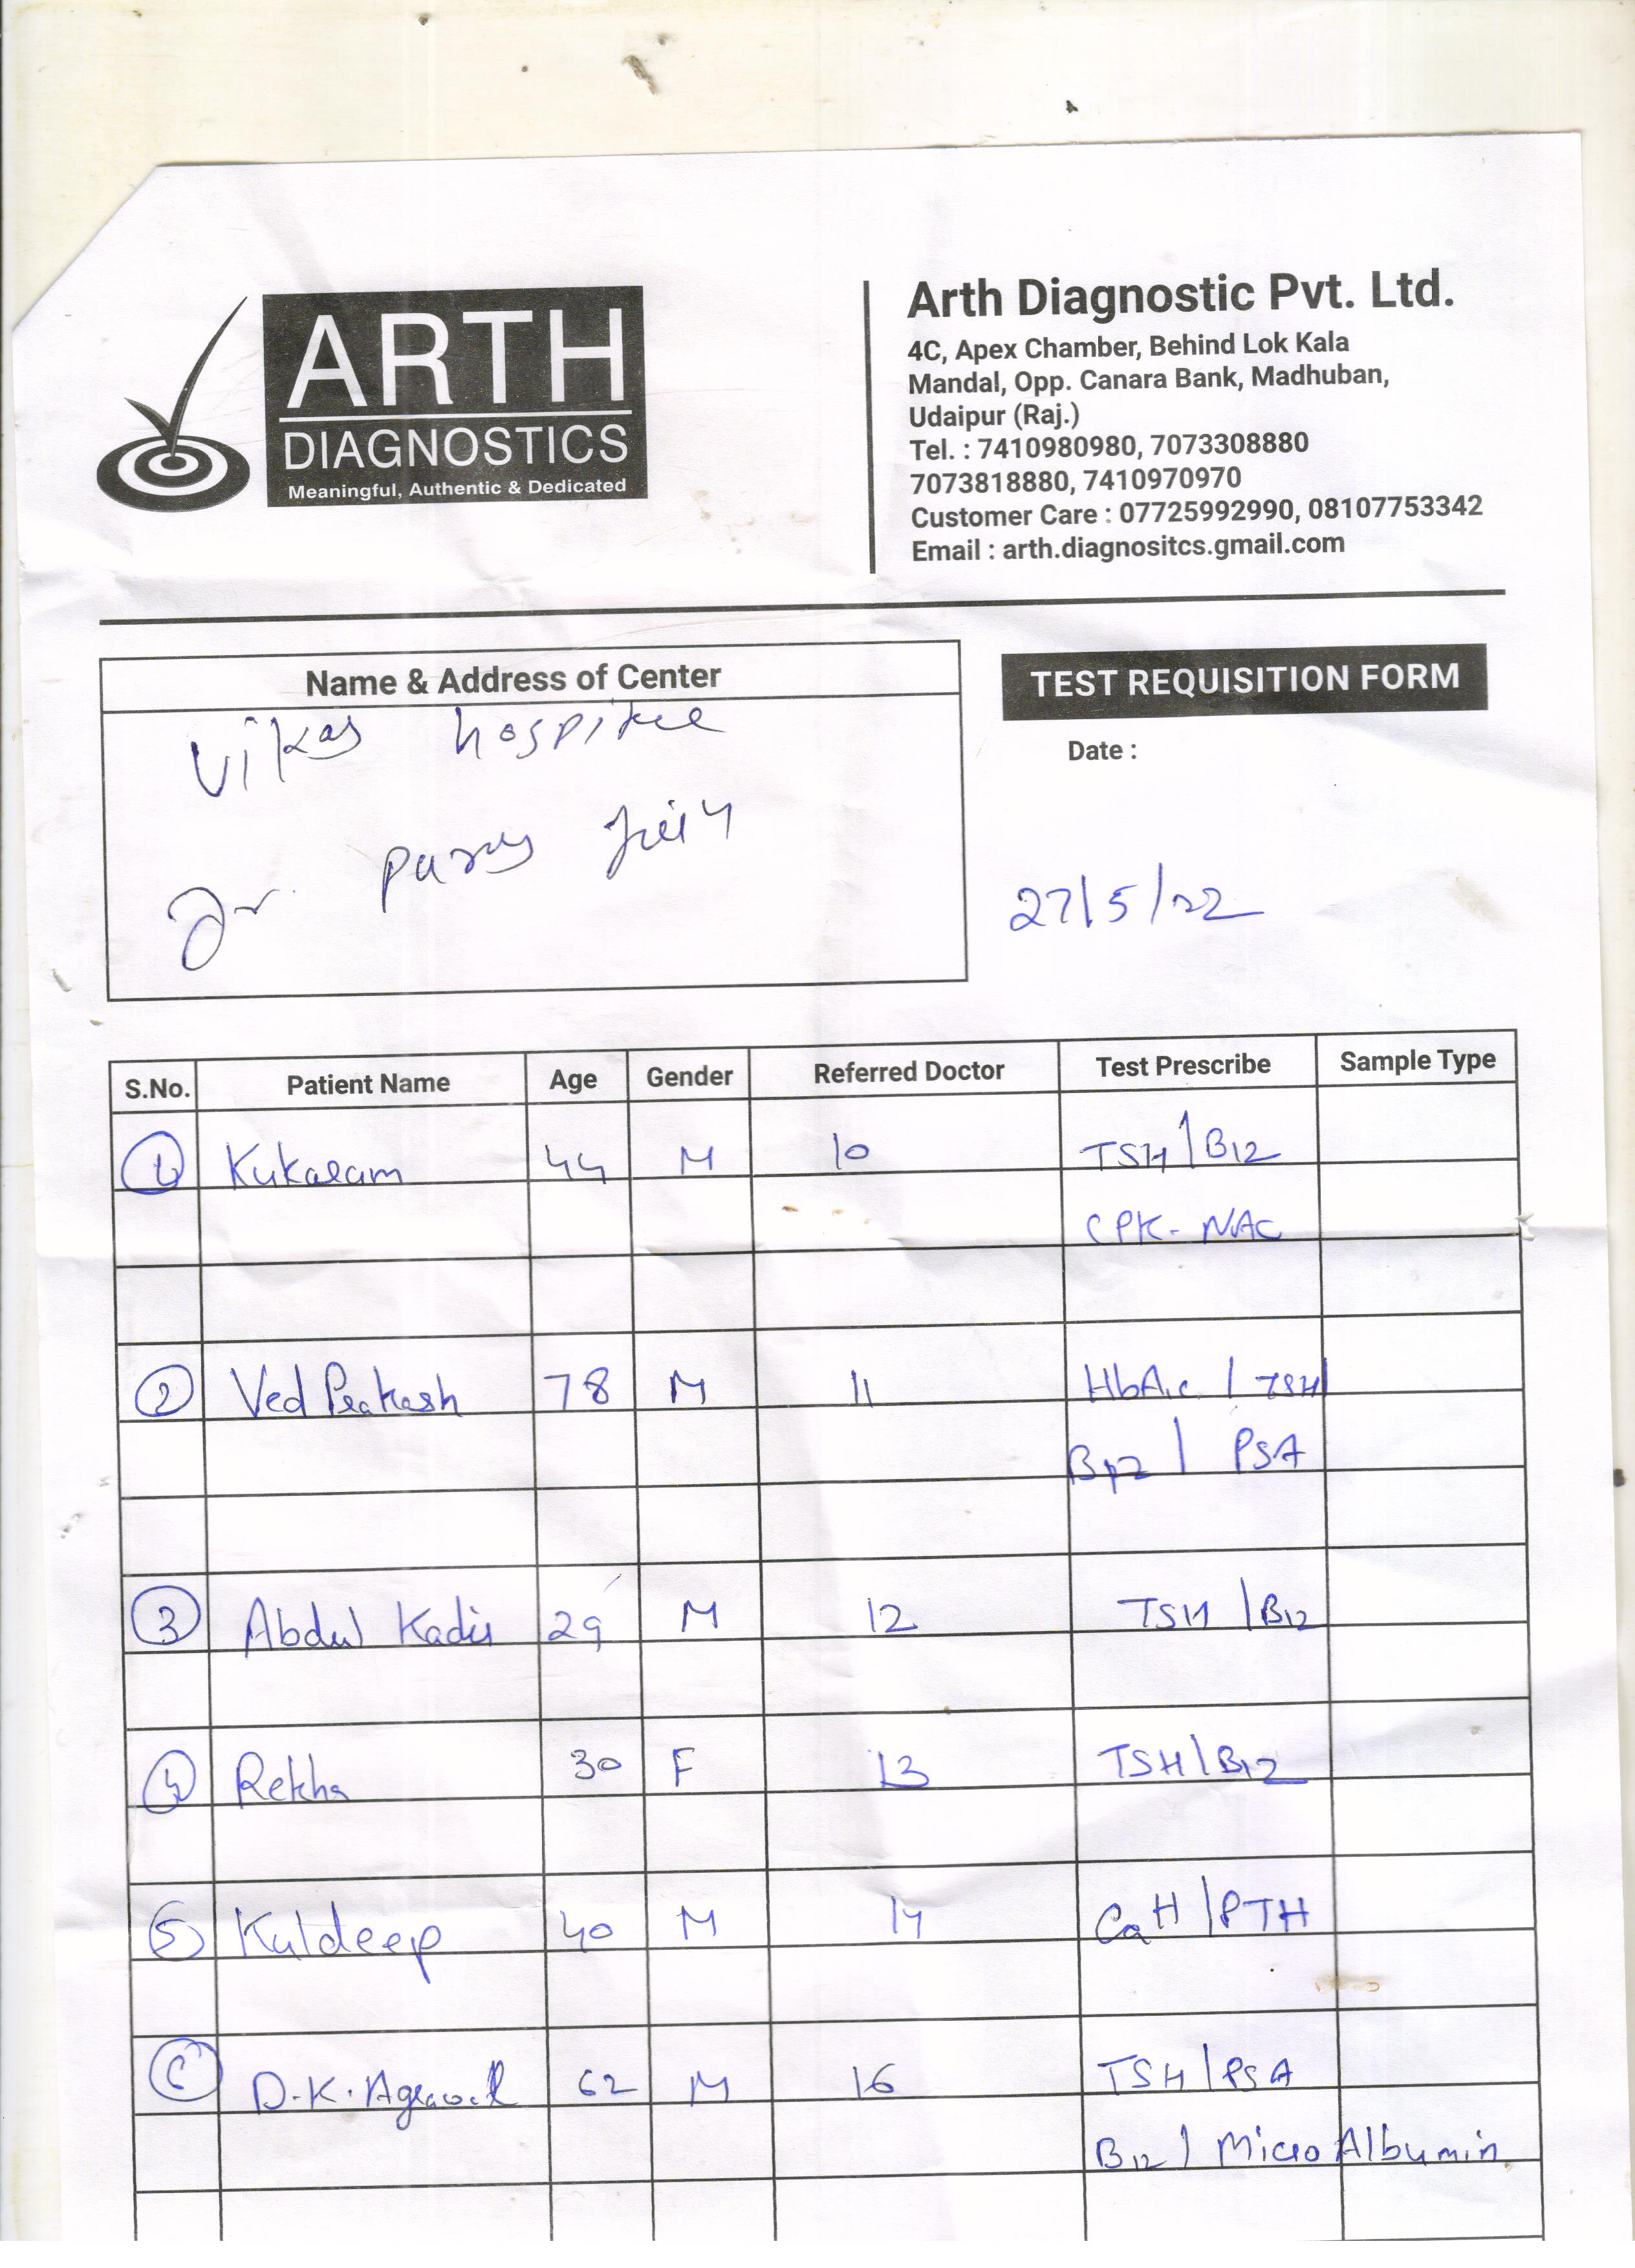 ARTH
DIAGNOSTICS
Meaningful, Authentic & Dedicated
Arth Diagnostic Pvt. Ltd.
4C, Apex Chamber, Behind Lok Kala
Mandal, Opp. Canara Bank, Madhuban,
Udaipur (Raj.)
Tel. : 7410980980, 7073308880
7073818880, 7410970970
Customer Care : 07725992990, 08107753342
Email : arth.diagnositcs.gmail.com
Name & Address of Center
Vikas hospital
Dr. paras Jain
TEST REQUISITION FORM
Date :
27/5/22
S.No. Patient Name Age Gender Referred Doctor Test Prescribe Sample Type
1 Kukaram 44 M 10 TSH/B12
CPK-NAC
2 Ved Prakash 78 M 11 HbA1c / TSH
B12 / PSA
3 Abdul Kadir 29 M 12 TSH /B12
4 Rekha 30 F 13 TSH/B12
5 Kuldeep 40 M 14 /PTH
6 D.K. Agrawal 62 M 16 TSH/PSA
B12 / Micro Albumin